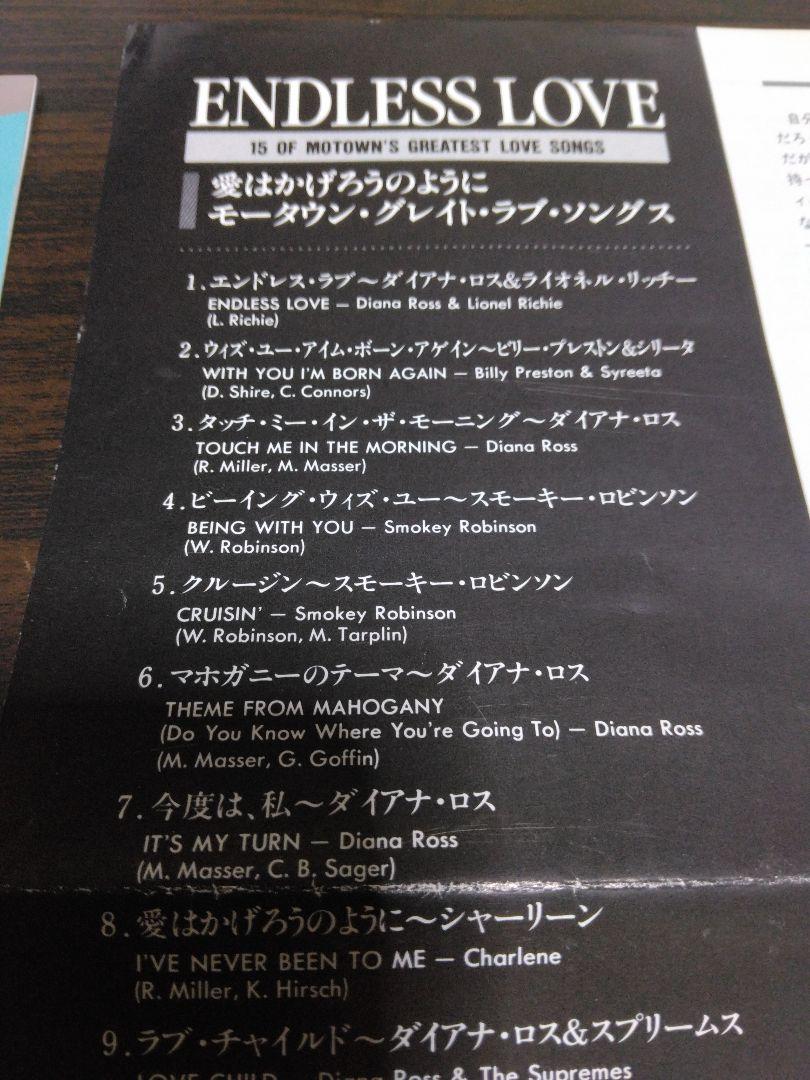 ENDLESS LOVE
15 OF MOTOWN'S GREATEST LOVE SONGS
愛はかげろうのように
モータウン・グレイト・ラブ・ソングス
1.エンドレス・ラブ〜ダイアナ・ロス&ライオネル・リッチー
ENDLESS LOVE – Diana Ross & Lionel Richie
(L. Richie)
2.ウィズ・ユー・アイム・ボーン・アゲイン〜ビリー・プレストン&シリータ
WITH YOU I'M BORN AGAIN – Billy Preston & Syreeta
(D. Shire, C. Connors)
3.タッチ・ミー・イン・ザ・モーニング〜ダイアナ・ロス
TOUCH ME IN THE MORNING – Diana Ross
(R. Miller, M. Masser)
4.ビーイング・ウィズ・ユー〜スモーキー・ロビンソン
BEING WITH YOU – Smokey Robinson
(W. Robinson)
5.クルージン〜スモーキー・ロビンソン
CRUISIN' – Smokey Robinson
(W. Robinson, M. Tarplin)
6.マホガニーのテーマ〜ダイアナ・ロス
THEME FROM MAHOGANY
(Do You Know Where You're Going To) – Diana Ross
(M. Masser, G. Goffin)
7.今度は、私〜ダイアナ・ロス
IT'S MY TURN – Diana Ross
(M. Masser, C. B. Sager)
8.愛はかげろうのように〜シャーリーン
I'VE NEVER BEEN TO ME – Charlene
(R. Miller, K. Hirsch)
9.ラブ・チャイルド〜ダイアナ・ロス&スプリームス
LOVE CHILD – Diana Ross & The Supremes
自分
だろ
だが
待っ
ィ
な